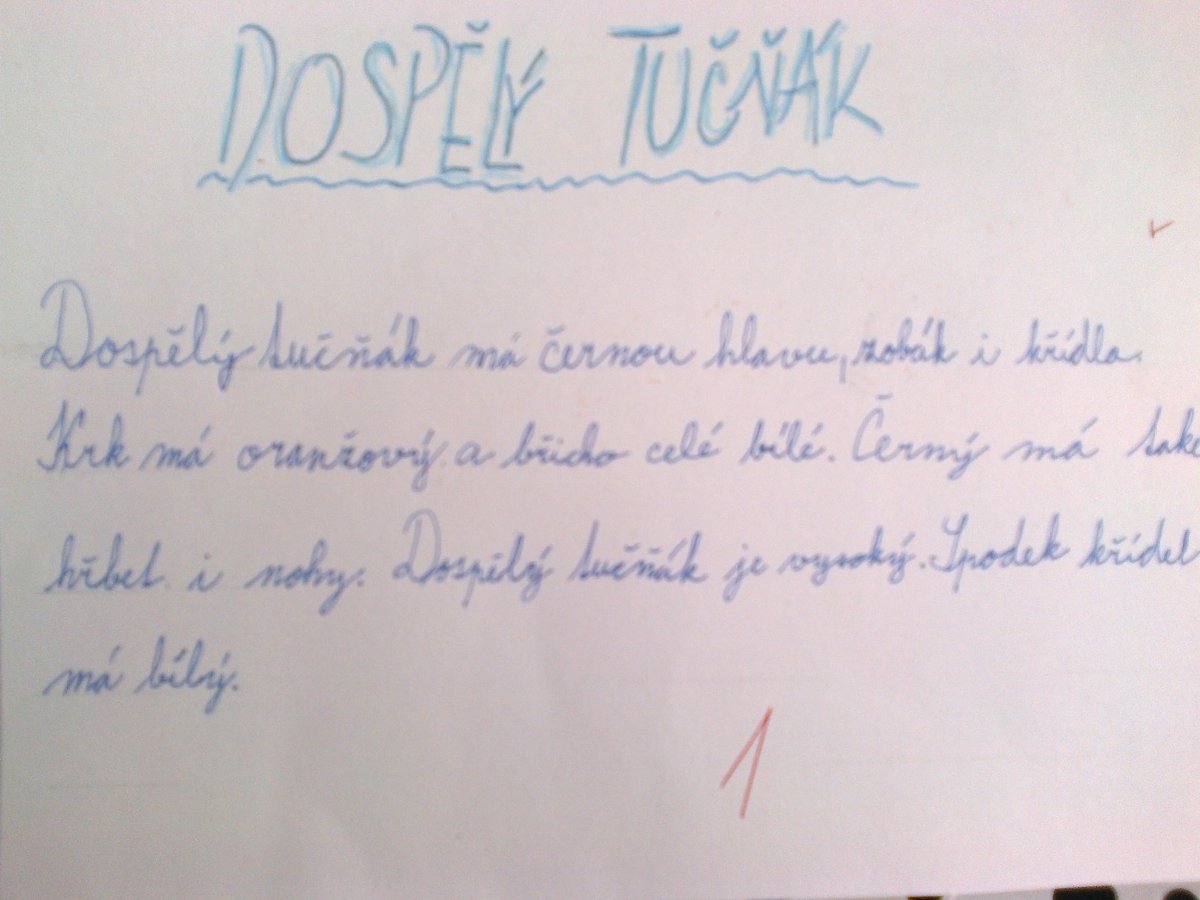 DOSPĚLÝ TUČŇÁK
Dospělý tučňák má černou hlavu, zobák i křídla.
Krk má oranžový a břicho celé bílé. Černý má take
hřbet i nohy. Dospělý tučňák je vysoký. Spodek křídel
má bílý.
1